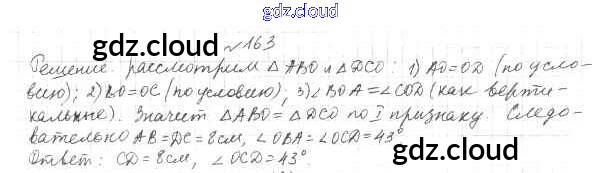 gdz.cloud
№163
gdz.cloud gdz.cloud
Решение. рассмотрим △ABO и △DCO: 1) AO=OD (по усло-
вию); 2) BO=OC (по условию); 3) ∠BOA=∠COD (как верти-
кальные). Значит △ABO=△DCO по I признаку. Следо-
вательно AB=DC=8см, ∠OBA=∠OCD=43°
Ответ: CD=8см, ∠OCD=43°.
gdz.cloud gdz.cloud